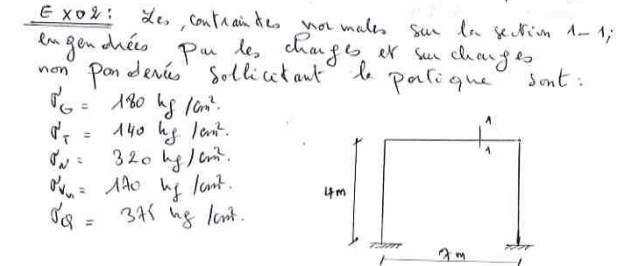 Exo2: Les contraintes normales sur la section 1-1;
engendrées par les charges et surcharges
non pondérées sollicitant le portique sont:
σ'G = 180 kg/cm².
σ'T = 140 kg/cm².
σ'N = 320 kg/cm².
σ'Vn = 170 kg/cm².
σ'Q = 375 kg/cm².
1
1
4m
7m